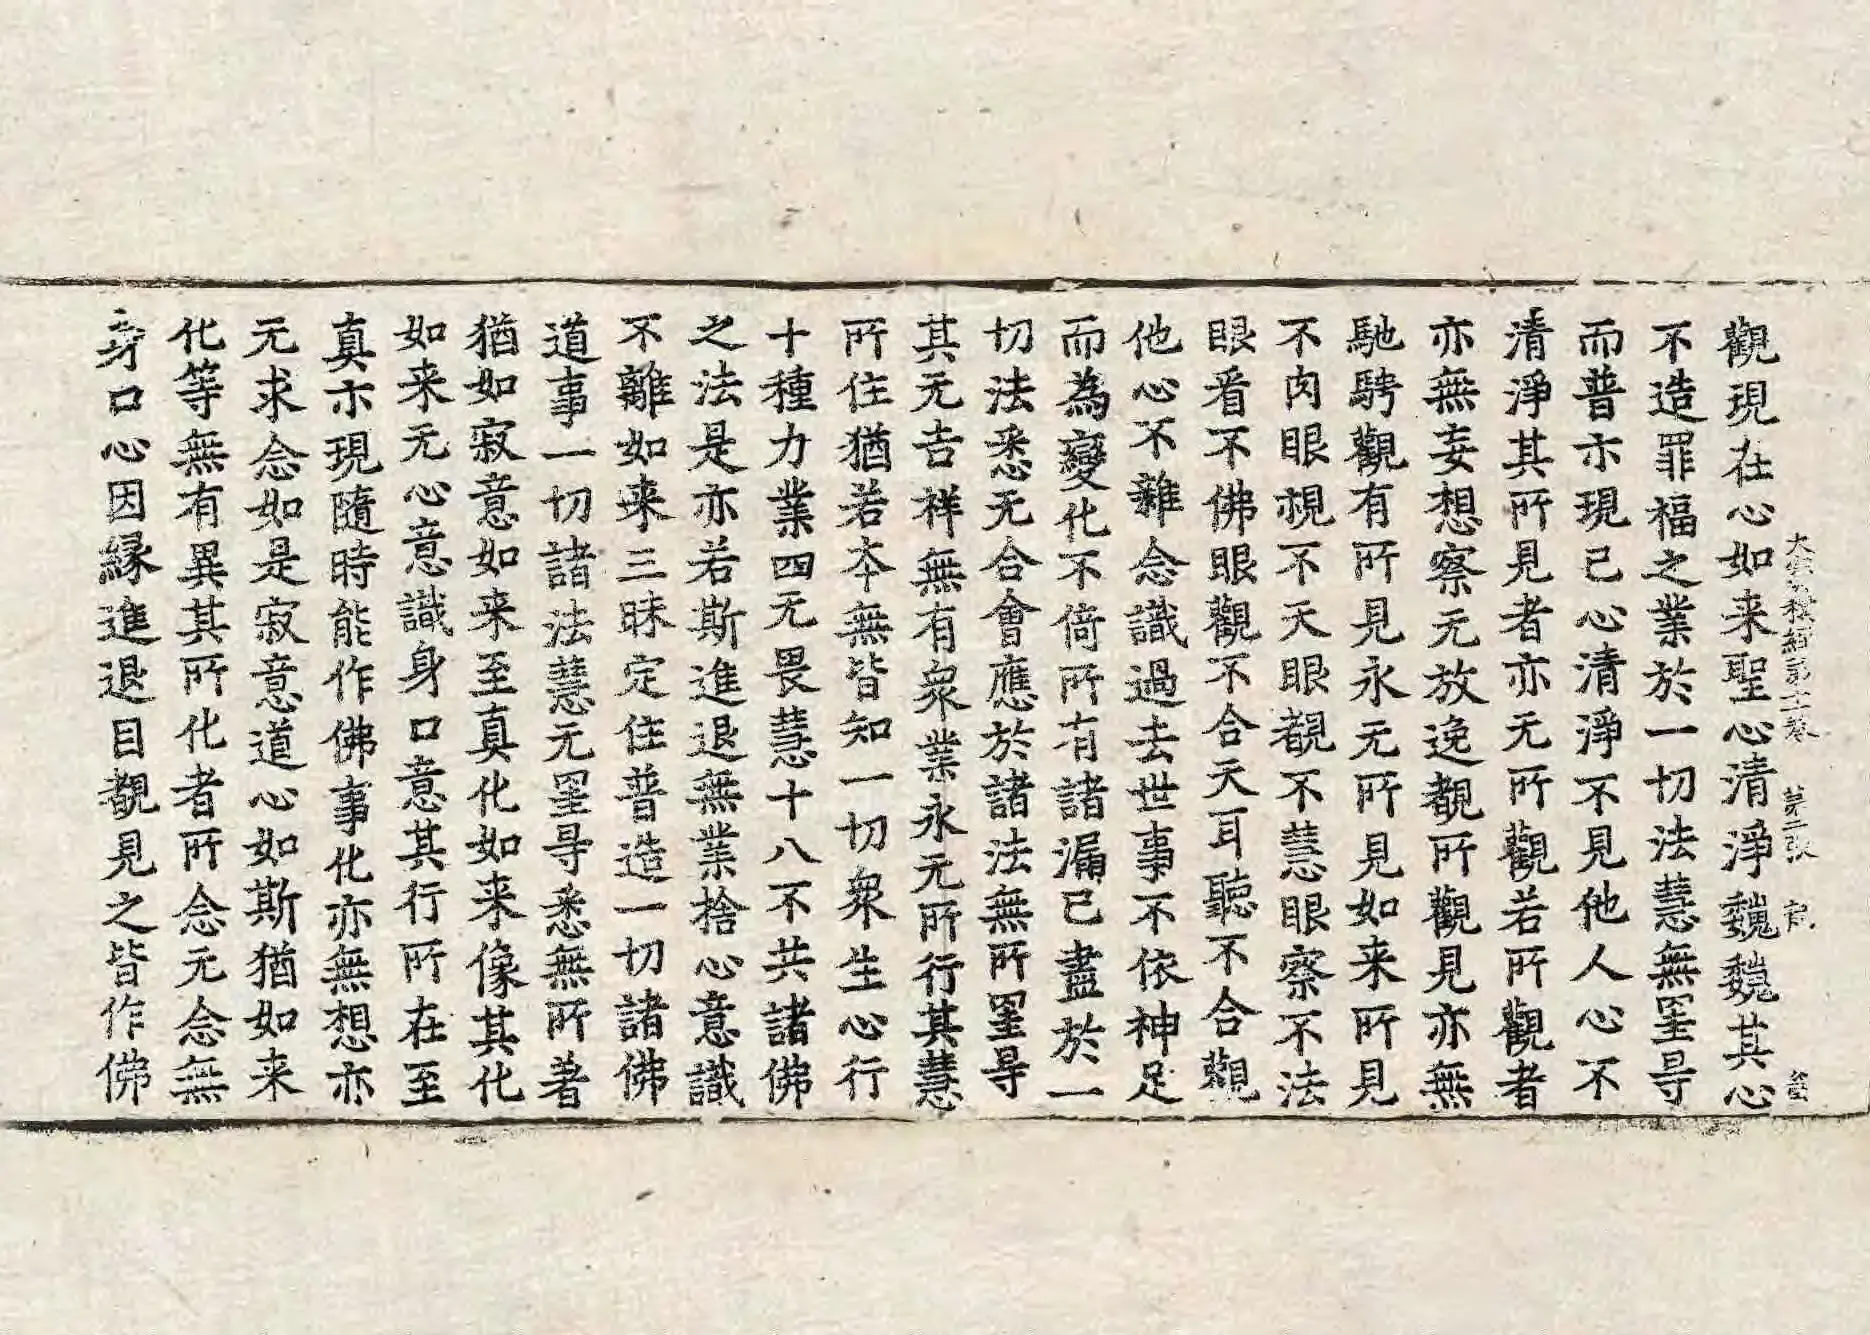 大寶積經第十一卷 第二張
觀現在心如来聖心清淨巍巍其心
不造罪福之業於一切法慧無罣㝵
而普示現己心清淨不見他人心不
清淨其所見者亦无所觀若所觀者
亦無妄想察无放逸覩所觀見亦無
馳騁觀有所見永无所見如来所見
不肉眼視不天眼覩不慧眼察不法
眼看不佛眼觀不合天耳聽不合觀
他心不雜念識過去世事不依神足
而為變化不倚所有諸漏已盡於一
切法悉无合會應於諸法無所罣㝵
其元吉祥無有衆業永元所行其慧
所住猶若夲無皆知一切衆生心行
十種力業四无畏慧十八不共諸佛
之法是亦若斯進退無業捨心意識
不離如来三昧定住普造一切諸佛
道事一切諸法慧元罣㝵悉無所著
猶如寂意如来至真化如来像其化
如来无心意識身口意其行所在至
真示現隨時能作佛事化亦無想亦
元求念如是寂意道心如斯猶如来
化等無有異其所化者所念元念無
身口心因緣進退目覩見之皆作佛